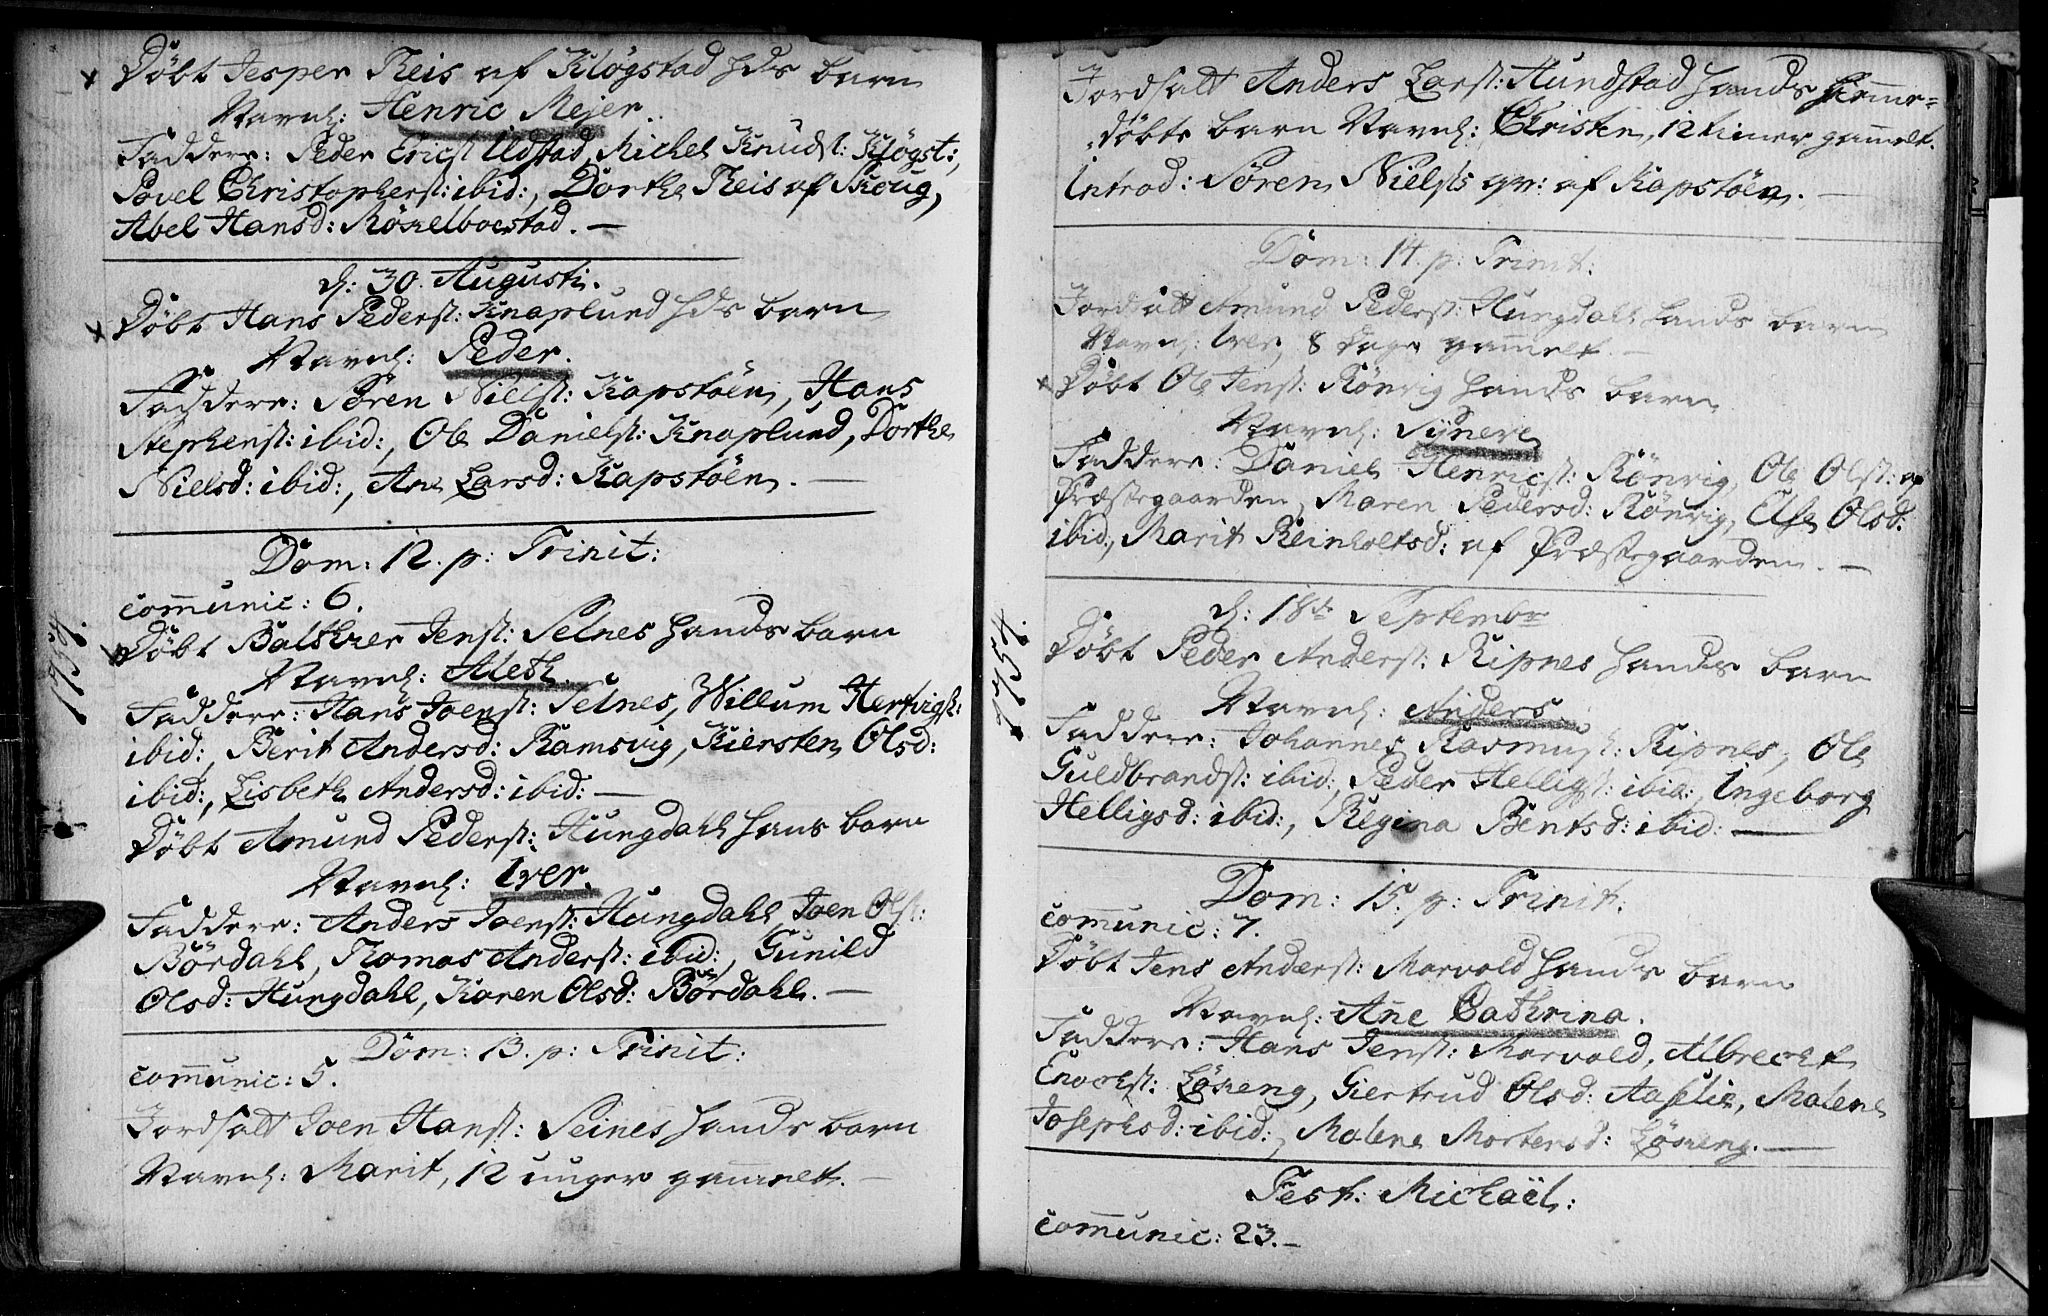 Døbt Jesper Reis af Kløgstad hds barn
Navnl: Henric Mejer.
Faddere: Peder Ericst: Udstad, Michel Knudst: Kløgst:,
Povel Christopherst: ibid:, Dorthe Reis af Skoug,
Abel Hansd: Røkelboestad. —
d: 30. Augusti.
Døbt Hans Pederst: Knaplund hds barn
Navnl: Peder.
Faddere: Søren Nielst: Kapstøen, Hans
Stephenst: ibid:, Ole Danielst: Knaplund, Dorthe
Nielsd: ibid:, Ane Larsd: Kapstøen. —
Dom: 12. p: Trinit:
com̅unic: 6.
1754.
Døbt Balthzer Jenst: Selnes hands barn
Navnl: Aleth.
Faddere: Hans Joenst: Selnes, Willum Hertvigst:
ibid:, Berit Andersd: Ramsvig, Kiersten Olsd:
ibid:, Lisbeth Andersd: ibid: —
Døbt Amund Pederst: Hungdahl hans barn
Navnl: Iver.
Faddere: Anders Joenst: Hungdahl, Joen Olst:
Børdahl, Thomas Anderst: ibid:, Gunild
Olsd: Hungdahl, Karen Olsd: Børdahl. —
Dom: 13. p: Trinit:
com̅unic: 5.
Jordfalt Joen Hanst: Seines hands barn
Navnl: Marit, 12 uuger gam̅elt. —
Jordfalt Anders Larst: Hundstad hands hiemme=
døbte barn Navnl: Christen, 12 timer gam̅elt.
Introd: Søren Nielsts qv: af Kapstøen. —
Dom: 14. p: Trinit:
Jordfalt Amund Pederst: Hungdahl hands barn
Navnl: Iver, 8 dage gam̅elt. —
Døbt Ole Jenst: Rönvig hands barn
Navnl: Syneve
Faddere: Daniel Henricst: Rönvig, Ole Olst: af
Præstegaarden, Maren Pedersd: Rönvig, Else Olsd:
ibid:, Marit Reinholtsd: af Præstegaarden. —
d: 18de Septembr
1754.
Døbt Peder Anderst: Ripnes hands barn
Navnl: Anders.
Faddere: Johannes Rasmust: Ripnes, Ole
Guldbrandst: ibid:, Peder Helligst: ibid:, Ingeborg
Helligsd: ibid:, Regina Bentsd: ibid: —
Dom: 15. p: Trinit.
com̅unic: 7.
Døbt Jens Anderst: Marvold hands barn
Navnl: Ane Cathrina.
Faddere: Hans Jenst: Marvold, Albrecht
Enochst: Løkeng, Giertrud Olsd: Aaselie, Malene
Josephsd: ibid:, Malene Mortensd: Løkeng. —
Fest: Michaël:
com̅unic: 23. —